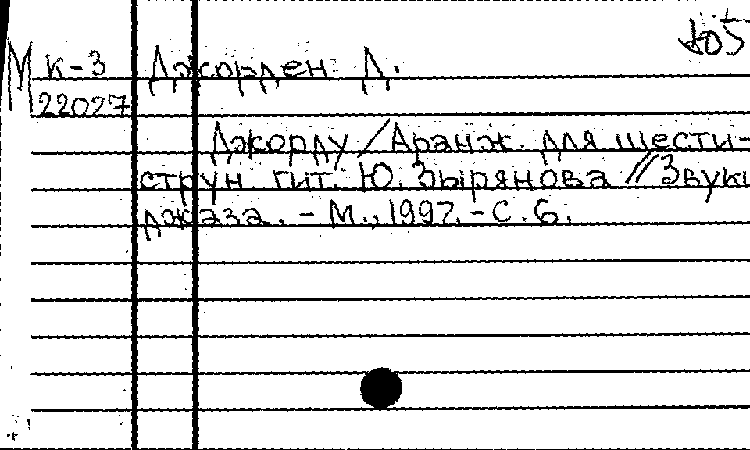 М К-3 Джорден Д.
22027
Джорду / Аранж. для шести-
струн. гит. Ю. Зырянова // Звуки
джаза. - М., 1997. - С. 6.